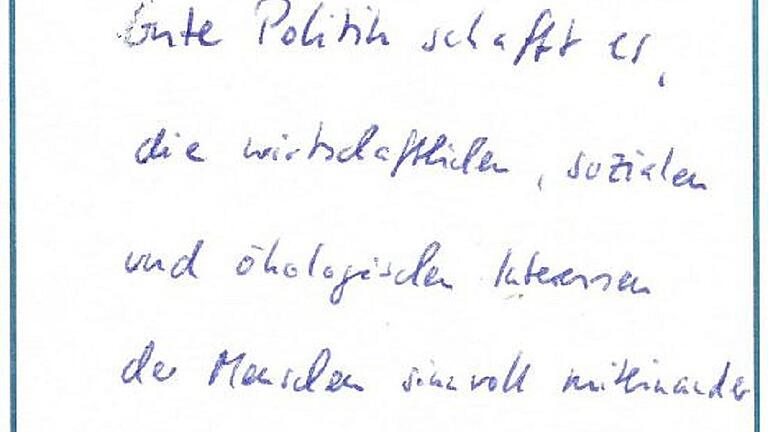 Gute Politik schafft es,
die wirtschaftlichen, sozialen
und ökologischen Interessen
der Menschen sinnvoll miteinander